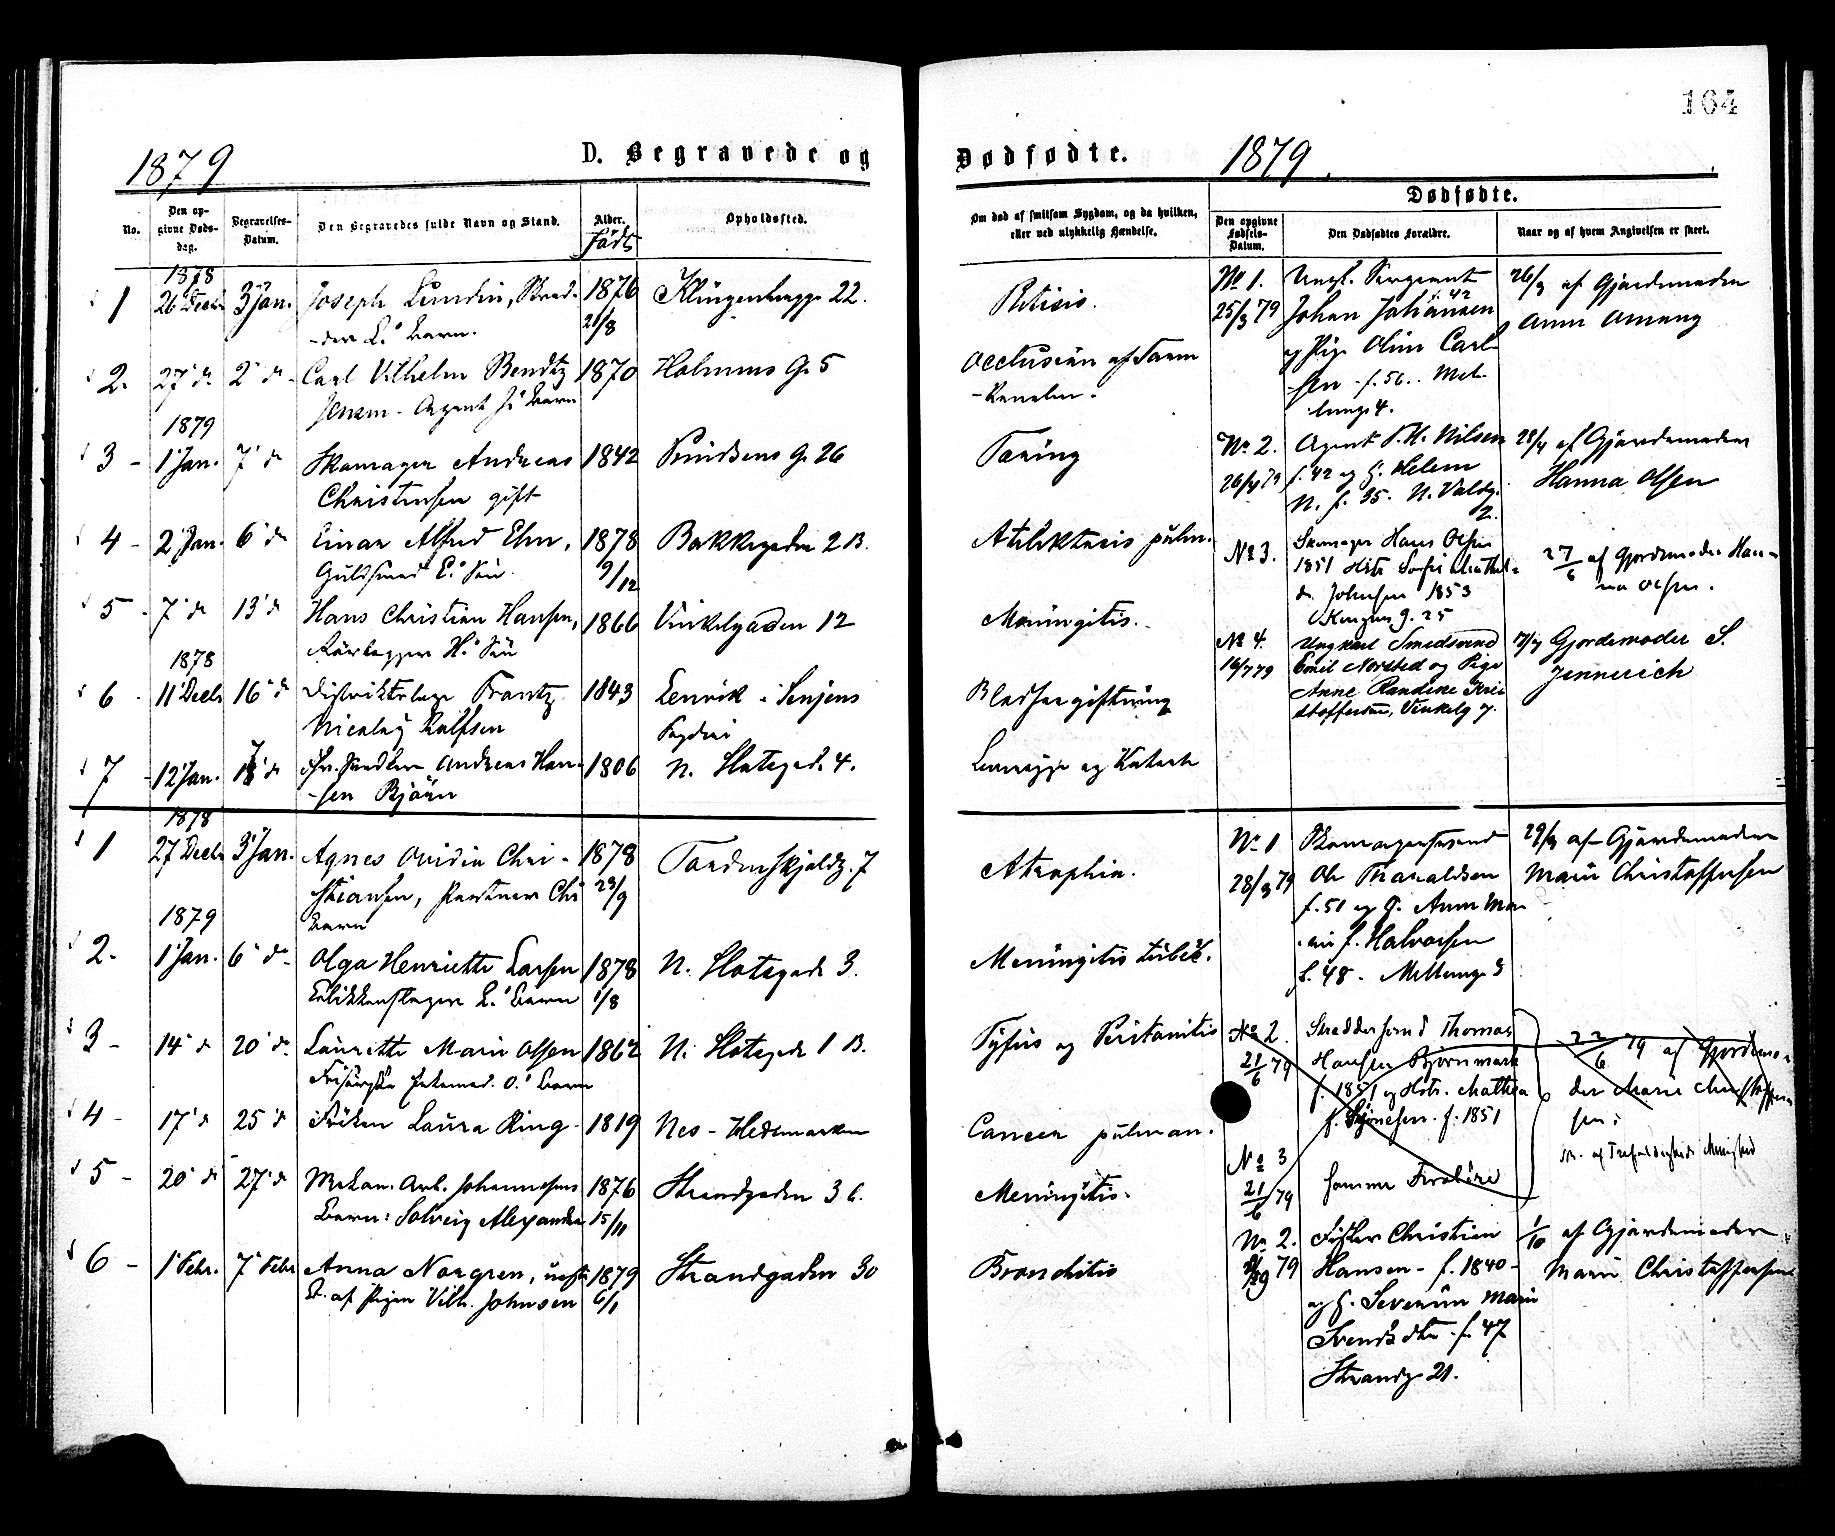 164
1879
D. Begravede og
Dødfødte.
1879.
No.
Den opgivne Dødsdag.
Begravelses-Datum.
Den Begravedes fulde Navn og Stand.
Alder.
født
Opholdssted.
Om død af smitsom Sygdom, og da hvilken,
eller ved ulykkelig Hændelse.
Dødfødte.
Den opgivne Fødsels-Datum.
Den Dødfødtes Forældre.
Naar og af hvem Angivelsen er skeet.
1878
1 26 Decbr 3 Jan. Joseph Lundin, 1876 Klingenbergg. 22.
L. Barn. 21/8
2. 27 d 2 d Carl Vilhelm Bendtz 1870 Holmens G. 5
Jensen - Agent J. Barn
1879
3 - 1 Jan. 7 d Skomager Andreas 1842 26
Christensen gift
4 - 2 Jan. 6 d Einar Alfred Elm, 1878 Bakkegaden 2 B.
Guldsmed E. Søn. 9/12
5 - 7 d 13 d Hans Christian Hansen, 1866 Vinkelgaden 12
H. Søn
1878
6 - 11 Decbr 16 d Distriktslæge Frantz 1843 Lenvik i Senjens
Nicolay Rolfsen Fogderi
7 - 12 Jan. d Andreas Han- 1806 N. Slotsgade 4.
-sen Bjørn
1878
1 27 Decbr 3 Jan. Agnes Ovidia Chri- 1878 Tordenskjoldg. 7
stiansen, Chr 23/9
Barn
1879
2. 1 Jan. 6 d Olga Henriette Larsen 1878 N. Slotsgade 3.
L. Barn 1/8
3 - 14 d 20 d Laurette Marie Olsen 1862 N. Slotsgade 1 B.
O. Barn
4 - 17 d 25 d Frøken Laura Ring 1819 Nes - Hedemarken
5 - 20 d 27 d Mekan. Arb. Johannesens 1876 Strandgaden 36.
Barn: Solveig Alexandra 15/11
6 - 1 Febr. 7 Febr Anna Norgren, uægte 1879 Strandgaden 30
B. af Pigen Vilh. Johnsen 6/1
Phtisis.
Occlusion af Tarm
-Kanalen.
Tæring
Atelektasis pulm.
Meningitis.
Blodforgiftning
og Katarh
Atrophia.
Meningitis tuberk.
Tyfus og Peritonitis
Cancer pulmon.
Meningitis.
Bronchitis
No 1. Ungk. Sergeant 26/3 af Gjordemoderen
25/3 79 Johan Johansen f. 42
og Pige Oline Carl-
-sen f. 56.
4.
No 2. Agent P. M. Nilsen 28/4 af Gjordemoderen
26/4 79 f. 42 og H. Helene Hanna Olsen
N. f. 35. N. Valdg.
2.
No 3. Skomager Hans Olsen 27/6 af Gjordemoder Han-
1851 Hstr Sofie Mathil- na Olsen.
de Johnsen 1853
Kongens g. 25
No 4. Ungkarl Smedsvend 17/7 Gjordemoder S.
16/7 79 Emil Norsted og Pige Jennerich
Anne Randine Kri-
stoffersen, Vinkelg 7.
No 1 Skomagersvend 29/3 af Gjordemoderen
28/3 79 Ole Tharaldsen Marie Christoffersen
f. 51 og H. Anne Ma-
rie f. Halvorsen
f. 48 - Mellemg 3
No 2. Skreddersvend Thomas 22/6 79 af Gjordemo-
21/6 79 Hansen Bjørnmark der Marie Christoffer-
f. 1851 og Hstr. Mathea sen
f. 1851
No 3
21/6 79 samme Forældre
No 2. Fisker Christian 1/10 af Gjordemoderen
79 Hansen - f. 1840 - Marie Christoffersen
og H. Severine Marie
Svendsdtr. f. 47
Strandg 21.